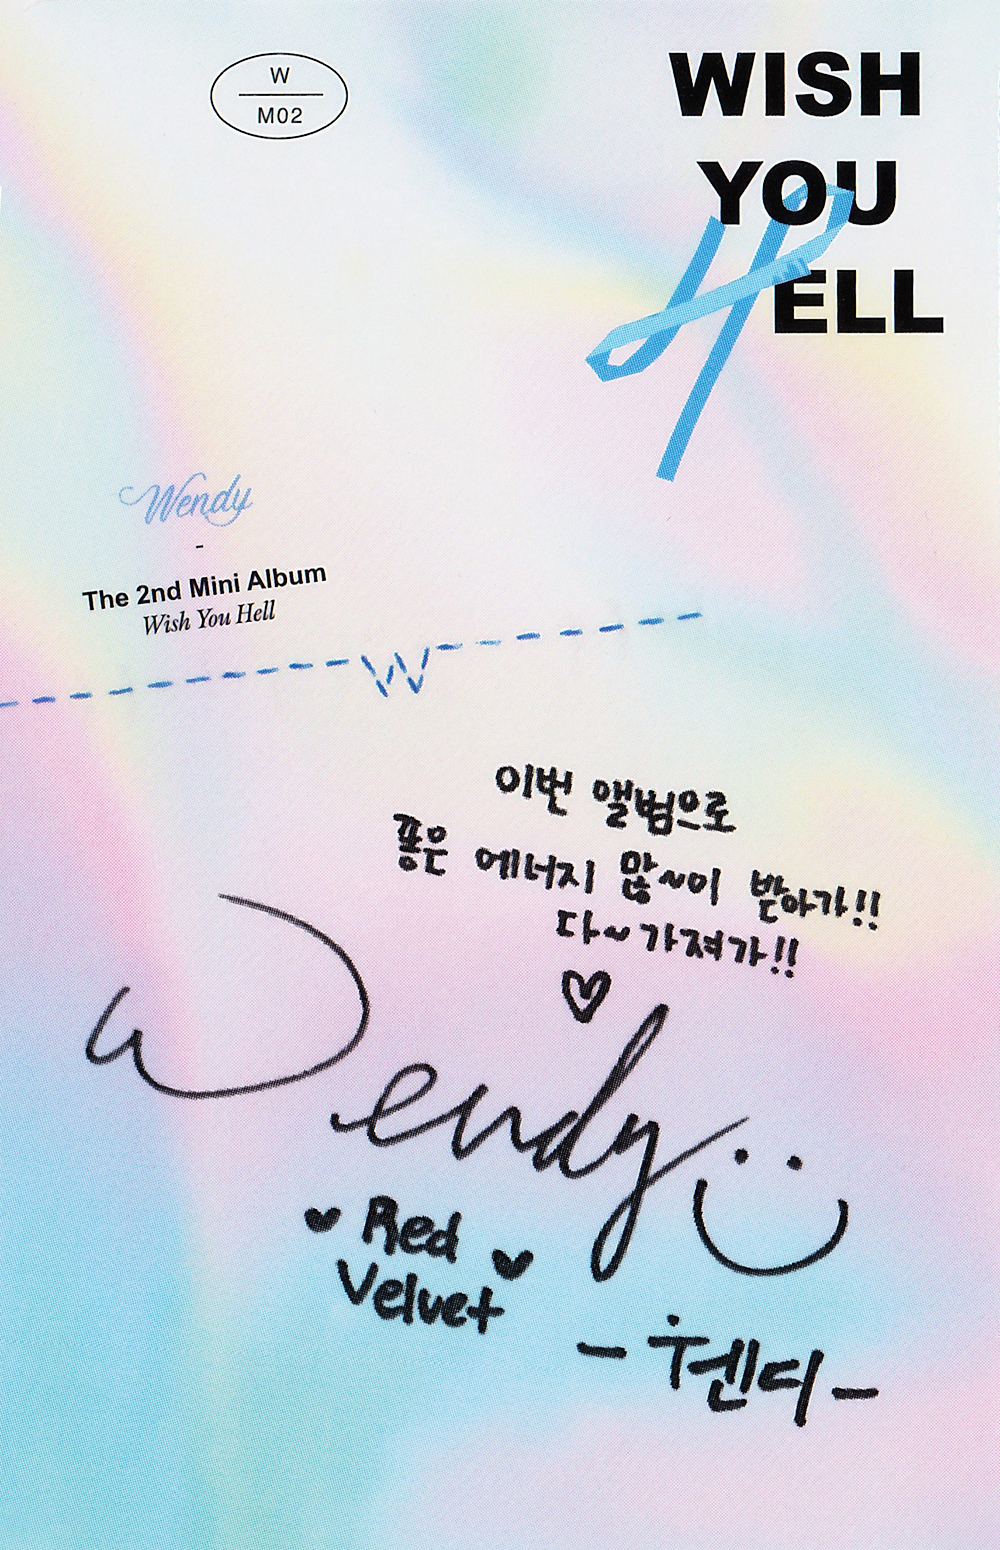 W
M02
WISH
YOU
HELL
Wendy
-
The 2nd Mini Album
Wish You Hell
W
이번 앨범으로
좋은 에너지 많~이 받아가!!
다~ 가져가!!
♡
Wendy
♥ Red ♥
Velvet
- 웬디 -